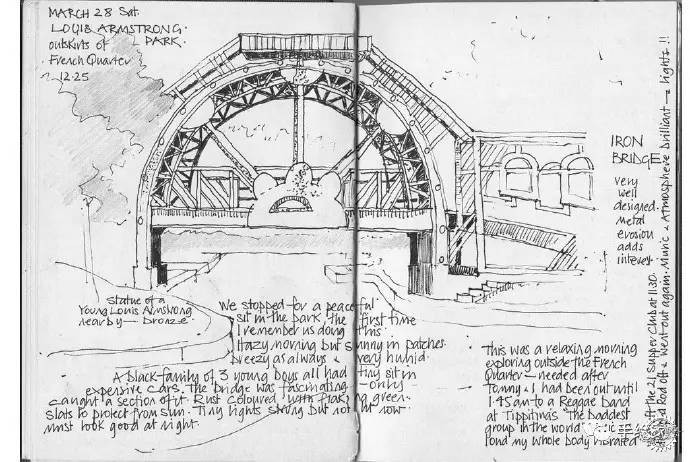 MARCH 28 Sat.
LOUIS ARMSTRONG
PARK.
outskirts of
French Quarter
12.25
IRON
BRIDGE
very
well
designed.
metal
erosion
adds
interest
Statue of a
Young Louis Armstrong
nearby — bronze.
We stopped for a peaceful
sit in the park, the first time
I remember us doing this
Hazy morning but sunny in patches
breezy as always & very humid.
A black family of 3 young boys all had
tiny sit in
expensive cars. The bridge was fascinating - only
caught a section of it Rust coloured, with
green
slats to protect from sun. Tiny lights strung but not lit now.
must look good at night.
This was a relaxing morning
exploring outside the French
Quarter — needed after
Tommy & I had been out until
1.45 am to a Reggae Band
at Tippitina's "The baddest
group in the world
loud my whole body vibrated
Supper Club at 11.30.
& went out again. Music & Atmosphere Brilliant — Lights !!